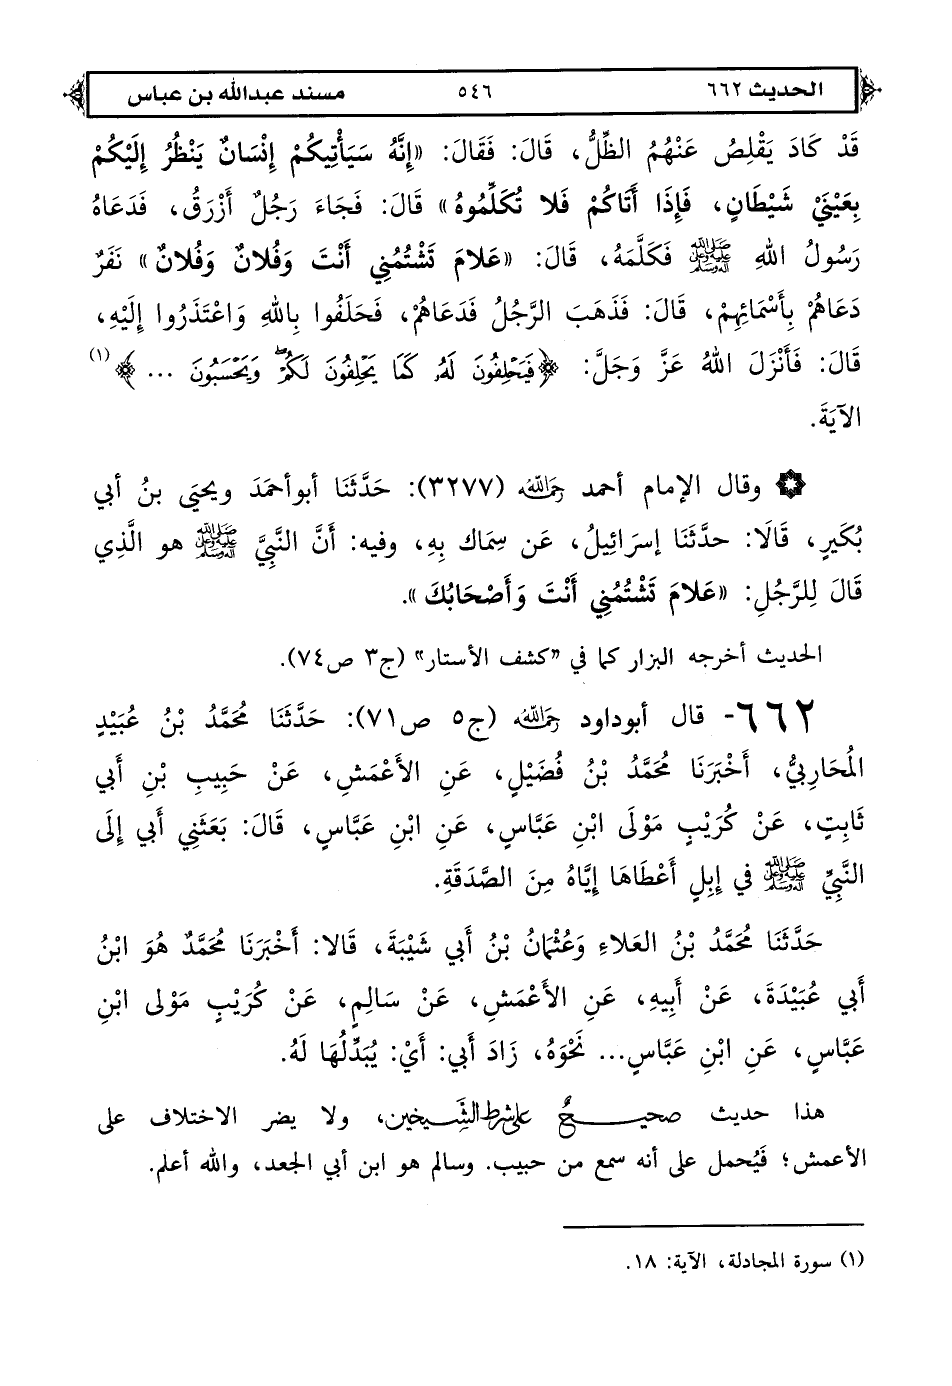 الحديث ٦٦٢ ٥٤٦ مسند عبدالله بن عباس
قَدْ كَادَ يَقْلِصُ عَنْهُمُ الظِّلُّ، قَالَ: فَقَالَ: «إِنَّهُ سَيَأْتِيكُمْ إِنْسَانٌ يَنْظُرُ إِلَيْكُمْ
بِعَيْنَيْ شَيْطَانٍ، فَإِذَا أَتَاكُمْ فَلَا تُكَلِّمُوهُ» قَالَ: فَجَاءَ رَجُلٌ أَزْرَقُ، فَدَعَاهُ
رَسُولُ اللهِ ﷺ فَكَلَّمَهُ، قَالَ: «عَلَامَ تَشْتُمُنِي أَنْتَ وَفُلَانٌ وَفُلَانٌ» نَفَرٌ
دَعَاهُمْ بِأَسْمَائِهِمْ، قَالَ: فَذَهَبَ الرَّجُلُ فَدَعَاهُمْ، فَحَلَفُوا بِاللهِ وَاعْتَذَرُوا إِلَيْهِ،
قَالَ: فَأَنْزَلَ اللهُ عَزَّ وَجَلَّ: ﴿فَيَحْلِفُونَ لَهُۥ كَمَا يَحْلِفُونَ لَكُمْ ۖ وَيَحْسَبُونَ ...﴾(١)
الآيَةَ.
۞ وقال الإمام أحمد رحمه الله (٣٢٧٧): حَدَّثَنَا أبوأحمَدَ ويحيَى بنُ أبي
بُكَيرٍ، قَالَا: حدَّثَنَا إسرَائيلُ، عَن سِمَاك بِهِ، وفيه: أَنَّ النَّبِيَّ ﷺ هو الَّذِي
قَالَ لِلرَّجُلِ: «عَلَامَ تَشْتُمُنِي أَنْتَ وَأَصْحَابُكَ».
الحديث أخرجه البزار كما في "كشف الأستار" (ج٣ ص٧٤).
٦٦٢- قال أبوداود رحمه الله (ج٥ ص٧١): حَدَّثَنَا مُحَمَّدُ بْنُ عُبَيْدٍ
المُحَارِبِيُّ، أَخْبَرَنَا مُحَمَّدُ بْنُ فُضَيْلٍ، عَنِ الأَعْمَشِ، عَنْ حَبِيبِ بْنِ أَبي
ثَابِتٍ، عَنْ كُرَيْبٍ مَوْلَى ابْنِ عَبَّاسٍ، عَنِ ابْنِ عَبَّاسٍ، قَالَ: بَعَثَنِي أَبي إِلَى
النَّبِيِّ ﷺ فِي إِبِلٍ أَعْطَاهَا إِيَّاهُ مِنَ الصَّدَقَةِ.
حَدَّثَنَا مُحَمَّدُ بْنُ العَلَاءِ وَعُثْمَانُ بْنُ أَبي شَيْبَةَ، قَالا: أَخْبَرَنَا مُحَمَّدٌ هُوَ ابْنُ
أَبي عُبَيْدَةَ، عَنْ أَبِيهِ، عَنِ الأَعْمَشِ، عَنْ سَالِمٍ، عَنْ كُرَيْبٍ مَوْلى ابْنِ
عَبَّاسٍ، عَنِ ابْنِ عَبَّاسٍ... نَحْوَهُ، زَادَ أَبي: أَيْ: يُبَدِّلُهَا لَهُ.
هذا حديث صحيحٌ على شرط الشَّيخين، ولا يضر الاختلاف على
الأعمش؛ فَيُحمل على أنه سمع من حبيب. وسالم هو ابن أبي الجعد، والله أعلم.
(١) سورة المجادلة، الآية: ١٨.